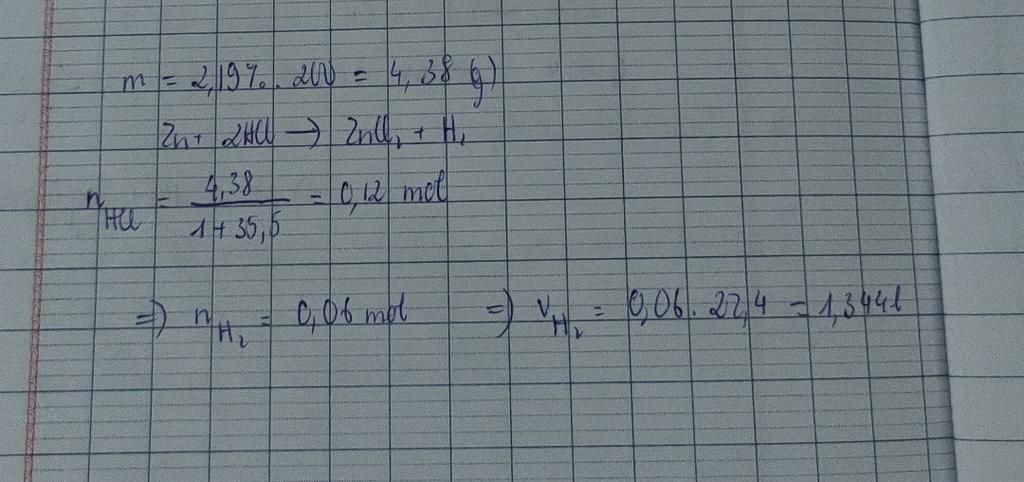 m = 2,19%. 200 = 4,38 (g)
Zn + 2HCl → ZnCl₂ + H₂
n_HCl = 4,38 / (1 + 35,5) = 0,12 mol
=> n_H₂ = 0,06 mol => V_H₂ = 0,06. 22,4 = 1,344l